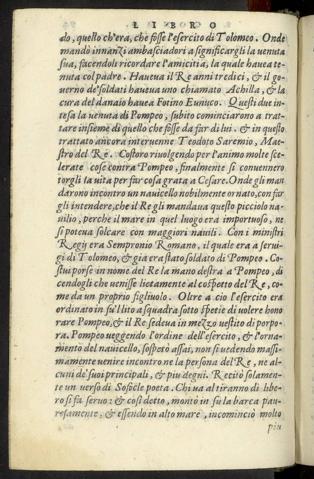 LIBRO
alo, questo ch'era, che fosse l'esercito di Tolomeo. Onde
mandò innanzi ambasciadori a significargli la venuta
sua, facendoli ricordare l'amicitia, la quale havea te-
nuta col padre. Haveua il Re anni tredici, & il go-
uerno de' soldati hauteua uno chiamato Achilla, & la
cura del danaio havea Fotino Eunuco. Questi due in-
tesa la venuta di Pompeo, subito cominciarono a trat-
tare insieme di quello che fosse da far di lui. & in questo
trattato ancora interuenne Teodoto Saremio, Mae-
stro del Re. Costoro riuolgendo per l'animo molte sce-
lerate cose contra Pompeo, finalmente si conuennero
torgli la uita per far cosa grata a Cesare. Onde gli man
darono incontro un nauicello nobilmente ornato, con far
gli intendere, che il Re gli mandaua questo picciolo na-
uilio, perche il mare in quel luogo era importuoso, ne
si poteua solcare con maggiori nauili. Con i ministri
Regij era Sempronio Romano, il quale era a serui-
gi di Tolomeo, & gia era stato soldato di Pompeo. Co-
stui porse in nome del Re la mano destra a Pompeo, di
cendogli che uenisse lietamente al cospetto del Re, co-
me da un proprio figliuolo. Oltre a cio l'esercito era
ordinato in su'l lito a squadra sotto spetie di uolere hono
rare Pompeo, & il Re sedeua in mezzo uestito di porpo-
ra. Pompeo ueggendo l'ordine dell'esercito, & l'orna-
mento del nauicello, sospetò assai, non si uedendo massi-
mamente uenire incontro ne la persona del Re, ne al-
cuni de' suoi principali, & piu degni. Recitò solamen-
te un uerso di Sofocle poeta. Chi ua al tiranno di libe-
ro si fa seruo: & cosi detto, montò in su la barca pau-
rosamente, & essendo in alto mare, incominciò molto
piu